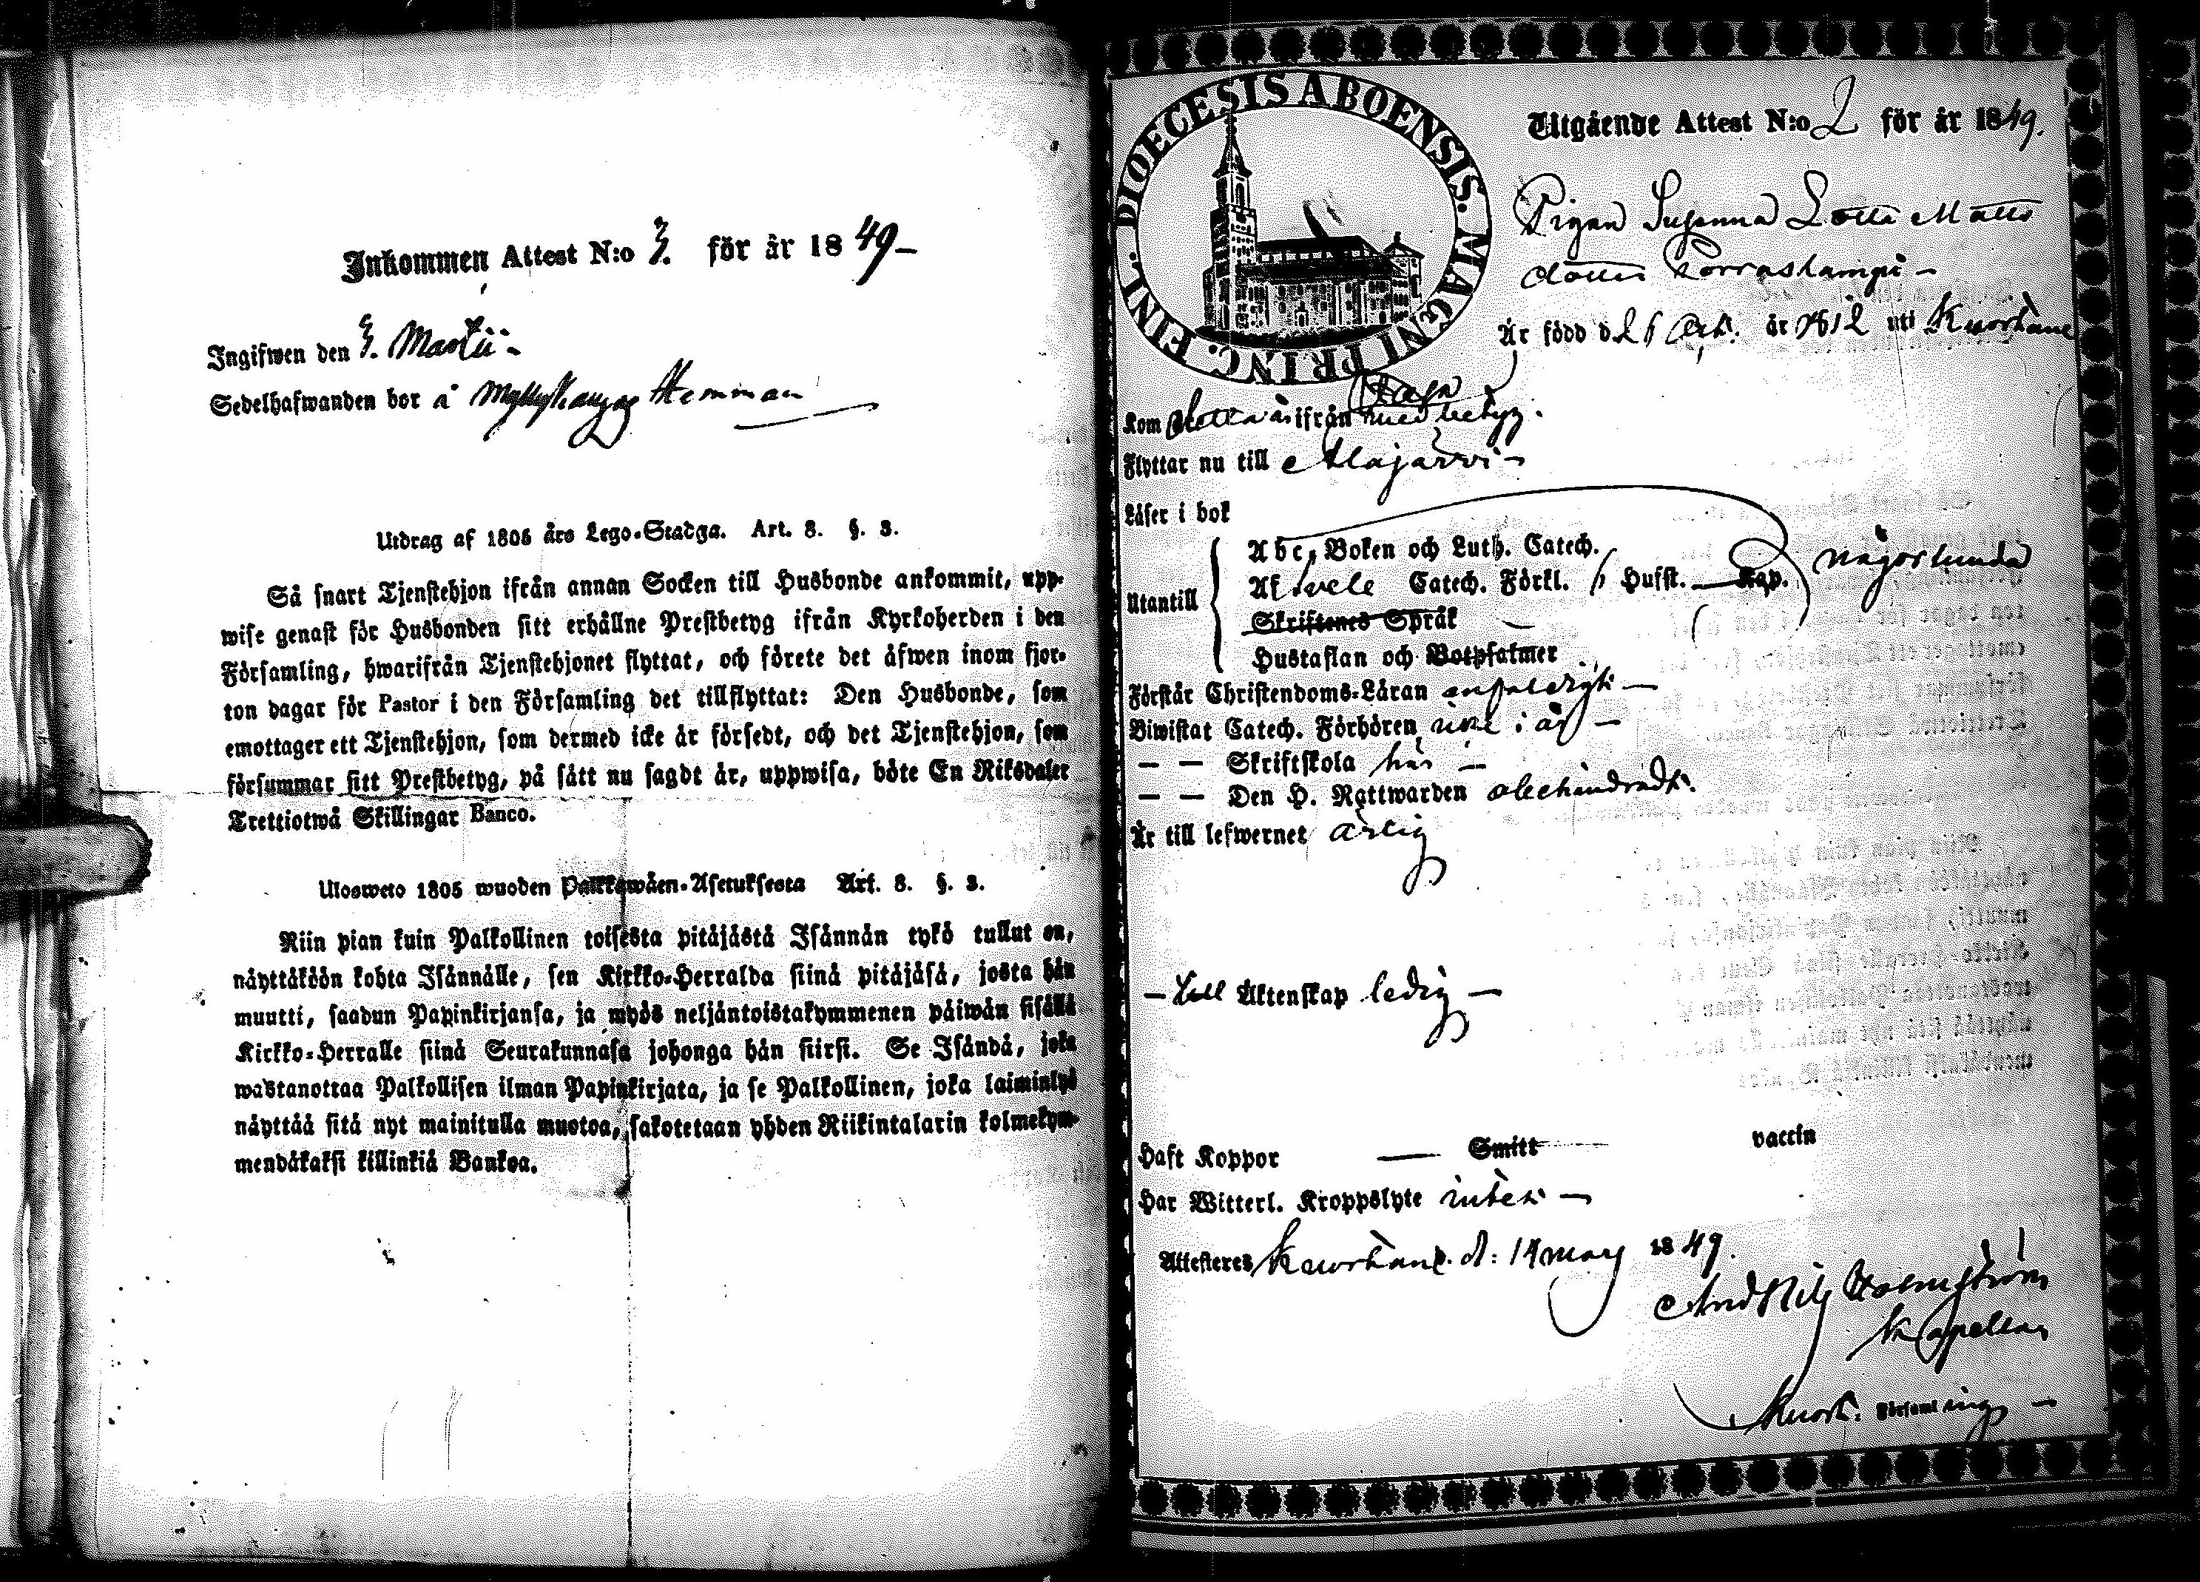 Inkommen Attest N:o 3. för år 1849 –
Ingifwen den 3. Martii –
Sedelhafwanden bor å Hemman
Utdrag af 1805 års Lego-Stadga. Art. 8. §. 3.
Så snart Tjenstehjon ifrån annan Socken till Husbonde ankommit, upp-
wise genast för Husbonden sitt erhållne Prestbetyg ifrån Kyrkoherden i den
Församling, hwarifrån Tjenstehjonet flyttat, och förete det äfwen inom fjor-
ton dagar för Pastor i den Församling det tillflyttat: Den Husbonde, som
emottager ett Tjenstehjon, som dermed icke är försedt, och det Tjenstehjon, som
försummar sitt Prestbetyg, på sätt nu sagdt är, uppwisa, böte En Riksdaler
Trettiotwå Skillingar Banco.
Ulosweto 1805 wuoden Palkkawäen-Asetuksesta Art. 8. §. 3.
Niin pian kuin Palkollinen toisesta pitäjästä Isännän tykö tullut on,
näyttäköön kohta Isännälle, sen Kirkko-Herralda siinä pitäjäsä, josta hän
muutti, saadun Papinkirjansa, ja myös neljäntoistakymmenen päiwän sisällä
Kirkko-Herralle siinä Seurakunnasa johonga hän siirsi. Se Isändä, joka
wastanottaa Palkollisen ilman Papinkirjata, ja se Palkollinen, joka laiminlyö
näyttää sitä nyt mainitulla muotoa, sakotetaan yhden Riikintalarin kolmekym-
mendäkaksi killinkiä Bankoa.
DIOECESIS ABOENSIS. MAGNI PRINC. FINL.
Utgående Attest N:o 2 för år 1849.
Pigan Susanna Lotta Matts
dotter –
Är född d. år 1812 uti Kuortane
Kom ifrån med betyg.
Flyttar nu till Alajärvi –
Läser i bok
Abc, Boken och Luth. Catech.
Utantill
Af Catech. Förkl. Husst. Kap. någorlunda
Skriftenes Språk
Hustaflan och Botpsalmer
Förstår Christendoms-Läran enfaldigt –
Biwistat Catech. Förhören i år –
– – Skriftskola här –
– – Den H. Nattwarden obehindradt.
Är till lefwernet ärlig
– Till Äktenskap ledig –
Haft Koppor — Smitt vaccin
Har Witterl. Kroppslyte intet –
Attesteres Kuortane d: 14 1849.
And Nils Holmström
Kapellan
Kuort. Församling –